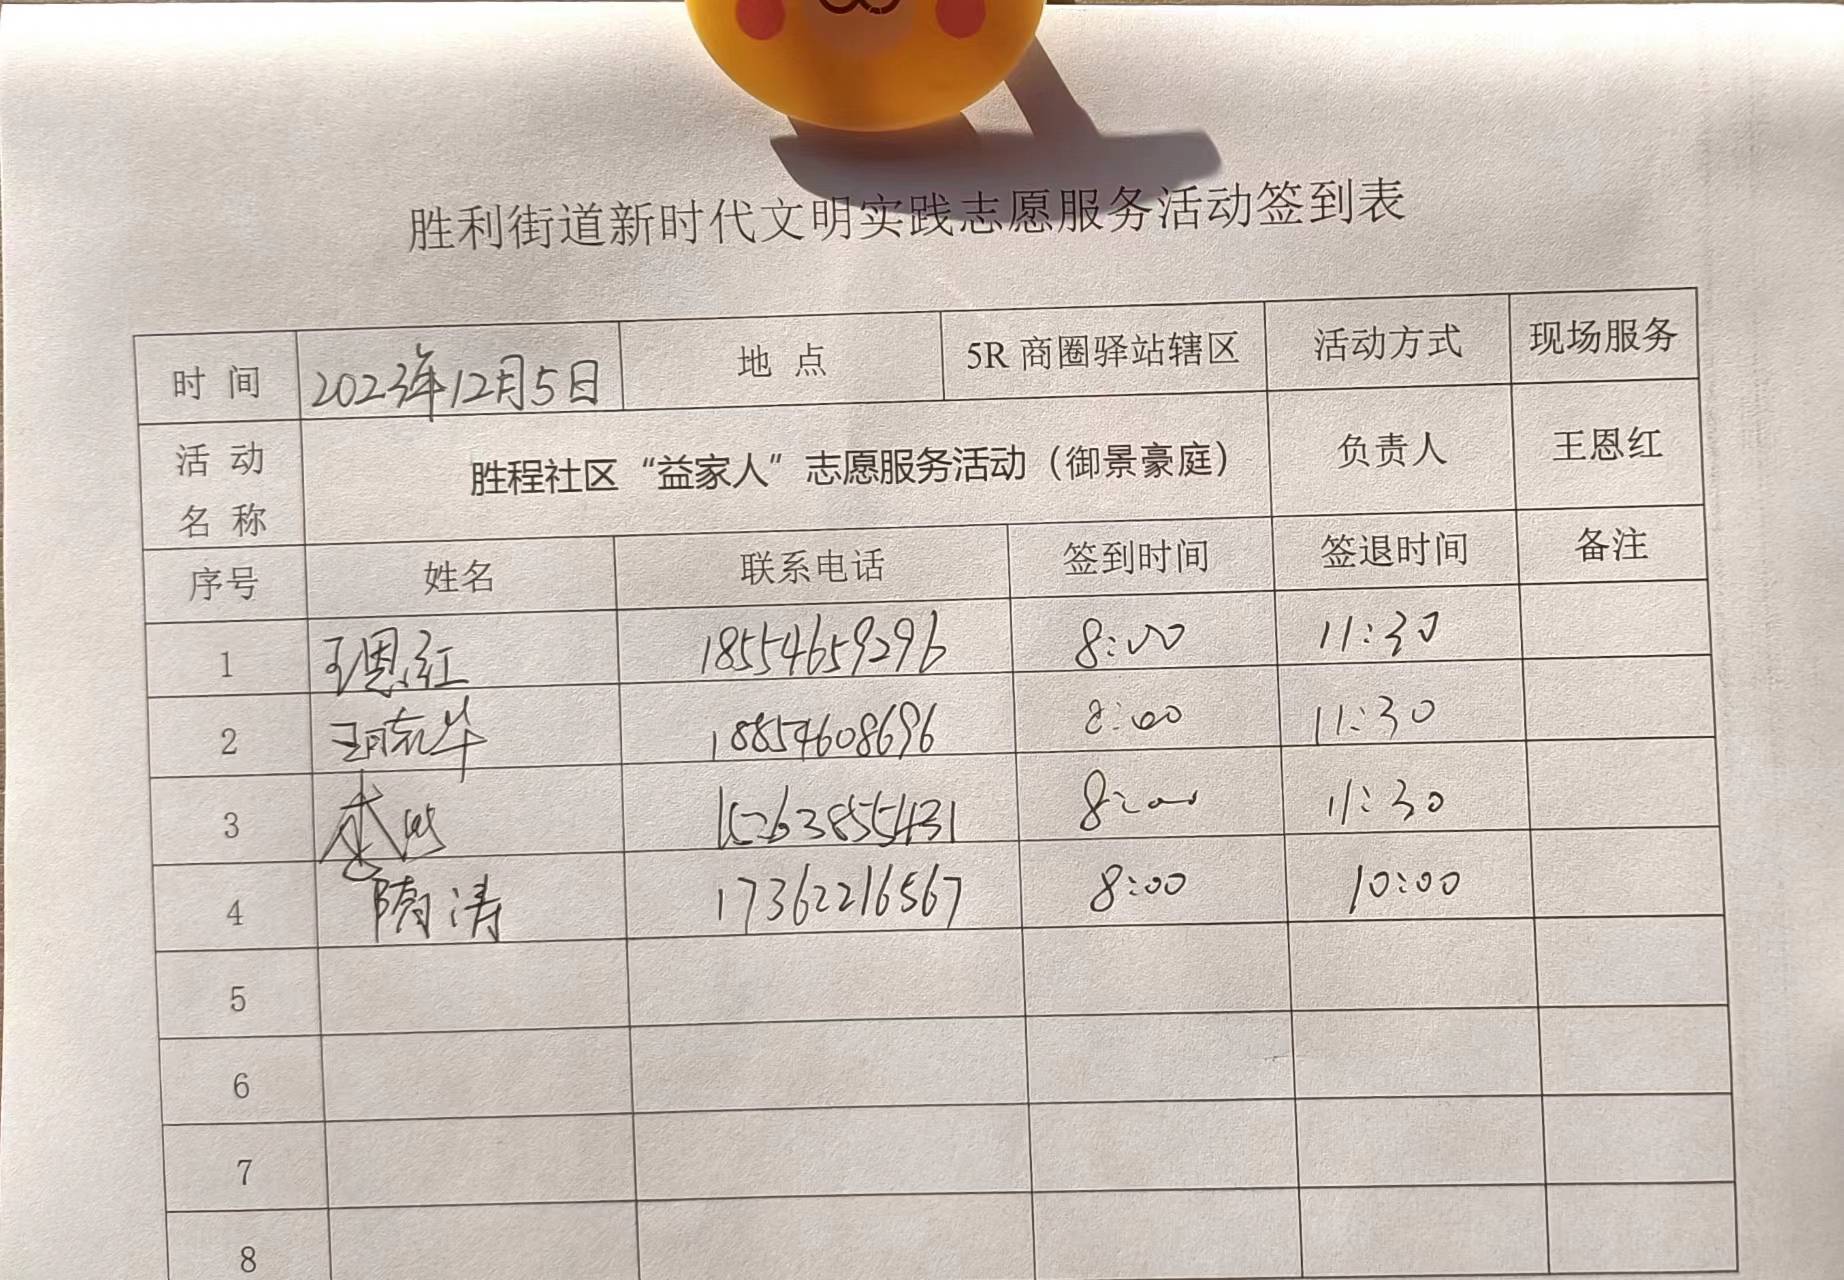 胜利街道新时代文明实践志愿服务活动签到表
时 间 2023年12月5日 地 点 5R 商圈驿站辖区 活动方式 现场服务
活 动
名 称 胜程社区“益家人”志愿服务活动（御景豪庭） 负责人 王恩红
序号 姓名 联系电话 签到时间 签退时间 备注
1 王恩红 18554659296 8:00 11:30
2 18854608696 8:00 11:30
3 15263855431 8:00 11:30
4 隋涛 17362216567 8:00 10:00
5
6
7
8